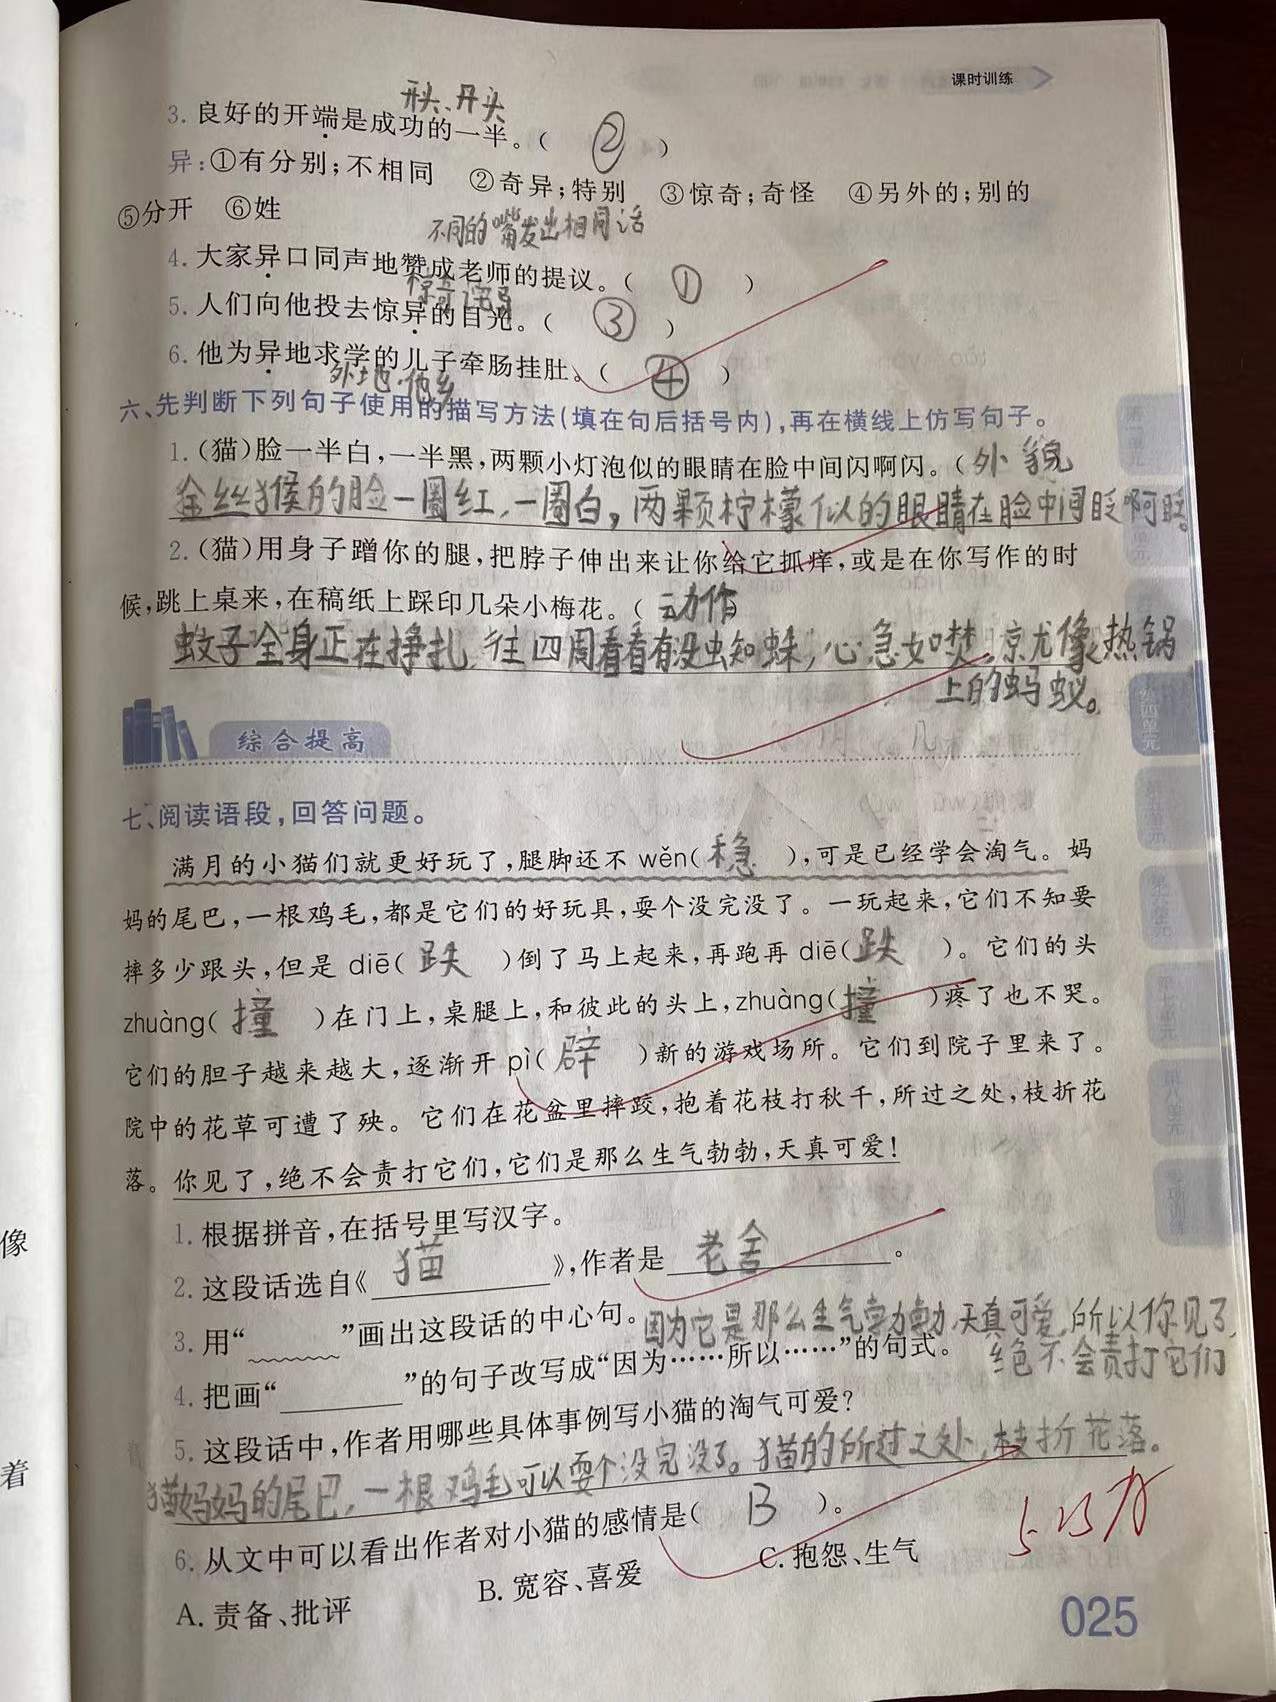 课时训练
开头、开头
3. 良好的开端是成功的一半。( ② )
异:①有分别;不相同 ②奇异;特别 ③惊奇;奇怪 ④另外的;别的
⑤分开 ⑥姓
不同的嘴发出相同话
4. 大家异口同声地赞成老师的提议。( ① )
惊奇诧异
5. 人们向他投去惊异的目光。( ③ )
6. 他为异地求学的儿子牵肠挂肚。( ④ )
外地·他乡
六、先判断下列句子使用的描写方法(填在句后括号内),再在横线上仿写句子。
1. (猫)脸一半白,一半黑,两颗小灯泡似的眼睛在脸中间闪啊闪。( 外貌
金丝猴的脸一圈红,一圈白,两颗柠檬似的眼睛在脸中间眨啊眨。
2. (猫)用身子蹭你的腿,把脖子伸出来让你给它抓痒,或是在你写作的时
候,跳上桌来,在稿纸上踩印几朵小梅花。( 动作
蚊子全身正在挣扎,往四周看看有没虫知蛛,心急如焚,京尤像热锅
上的蚂蚁。
综合提高
七、阅读语段,回答问题。
满月的小猫们就更好玩了,腿脚还不 wěn( 稳 ),可是已经学会淘气。妈
妈的尾巴,一根鸡毛,都是它们的好玩具,耍个没完没了。一玩起来,它们不知要
摔多少跟头,但是 diē( 跌 )倒了马上起来,再跑再 diē( 跌 )。它们的头
zhuàng( 撞 )在门上,桌腿上,和彼此的头上,zhuàng( 撞 )疼了也不哭。
它们的胆子越来越大,逐渐开 pì( 辟 )新的游戏场所。它们到院子里来了。
院中的花草可遭了殃。它们在花盆里摔跤,抱着花枝打秋千,所过之处,枝折花
落。你见了,绝不会责打它们,它们是那么生气勃勃,天真可爱!
1. 根据拼音,在括号里写汉字。
2. 这段话选自《 猫 》,作者是 老舍 。
3. 用“ ”画出这段话的中心句。
因为它是那么生气勃勃,天真可爱,所以你见了,
绝不会责打它们
4. 把画“ ”的句子改写成“因为……所以……”的句式。
5. 这段话中,作者用哪些具体事例写小猫的淘气可爱?
猫妈妈的尾巴,一根鸡毛可以耍个没完没了。猫的所过之处,枝折花落。
6. 从文中可以看出作者对小猫的感情是( B )。
A. 责备、批评 B. 宽容、喜爱 C. 抱怨、生气
025
第四单元
第八单元
像
着